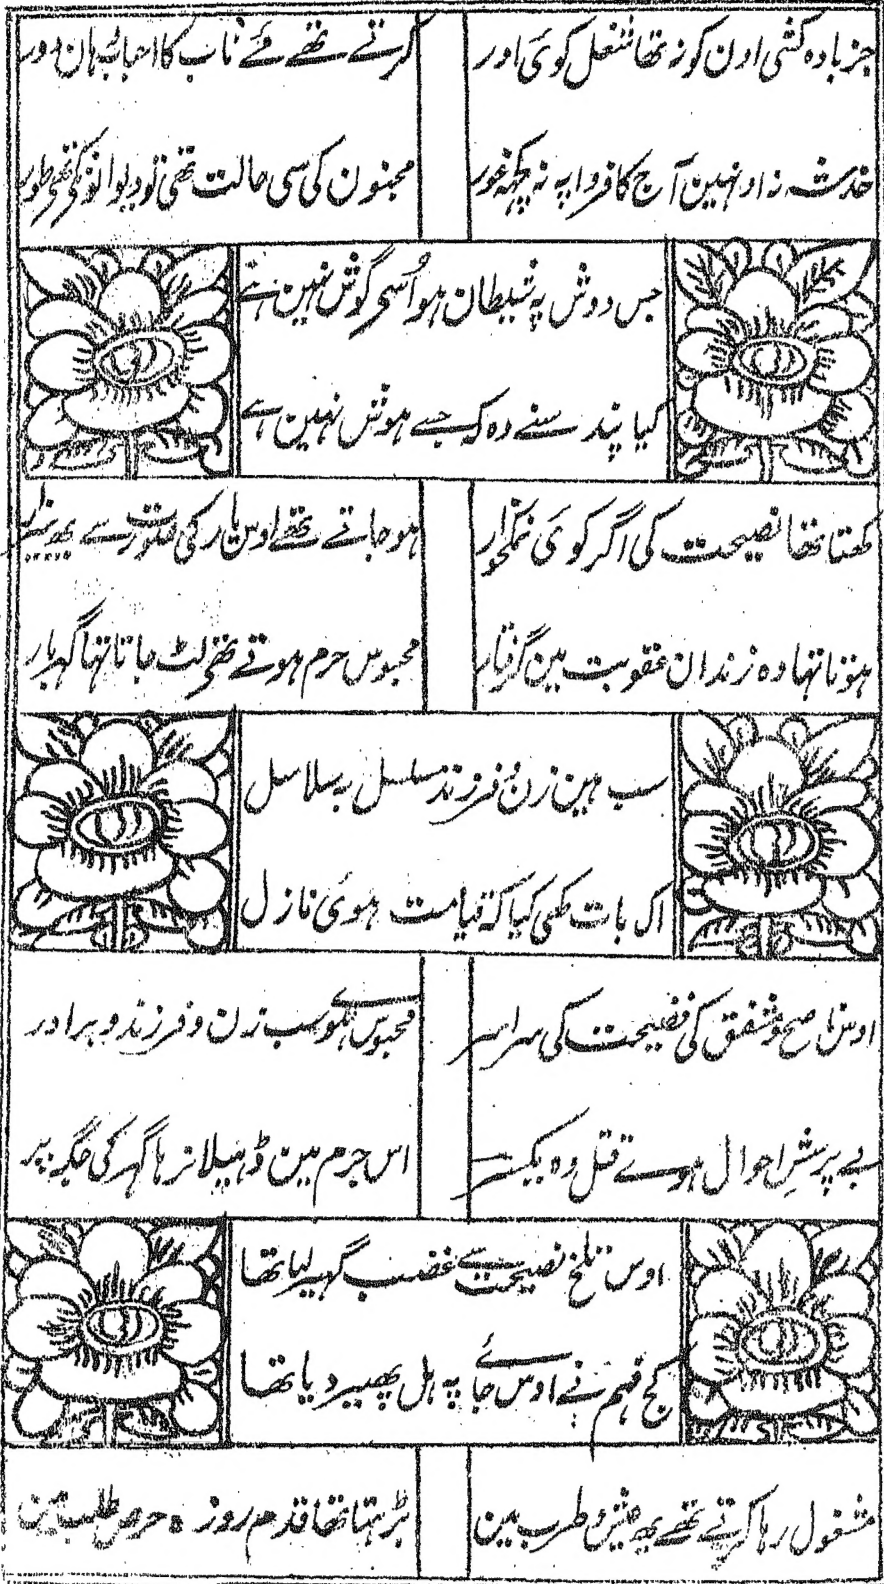 جز بادہ کشی اون کو نہ تھا شغل کوئی اور
کرتے تھے مئے ناب کا احباب وہان دور
خدشہ نہ اونہین آج کا فردا پہ نہ کچہہ غور
مجنون کی سی حالت تھی تو دیوانونکی تھی طور
جس دوش پہ شیطان ہو اُسی گوش نہین ہے
کیا پند سنے وہ کہ جسے ہوش نہین ہے
کھتا تھا نصیحت کی اگر کوئی نمکخوار
ہو جاتے تھے اوس یار کی صورت سے یہ بیزار
ہوتا تہا وہ زندان عقوبت مین گرفتار
محبوس حرم ہوتے تھی لٹ جاتا تہا گہر بار
سب ہین زن و فرزند مسلسل بہ سلاسل
اک بات کھی کیا کہ قیامت ہوئی نازل
اوس ناصح و مشفق کی فضیحت کی سراسر
محبوس ہوئے سب زن و فرزند و برادر
بے پرسشِ احوال ہوے قتل وہ یکسر
اس جرم مین ڈہیلا نرہا گہر کی جگہ پر
اوس تلخ نصیحت سے غضب گہیر لیا تھا
کج فہم نے اوس جائے پہ ہل پھیر دیا تھا
مشغول رہا کرتے تھے یہ عیش و طرب مین
بڑہتا تھا قدم روز ہ حرص طلب مین